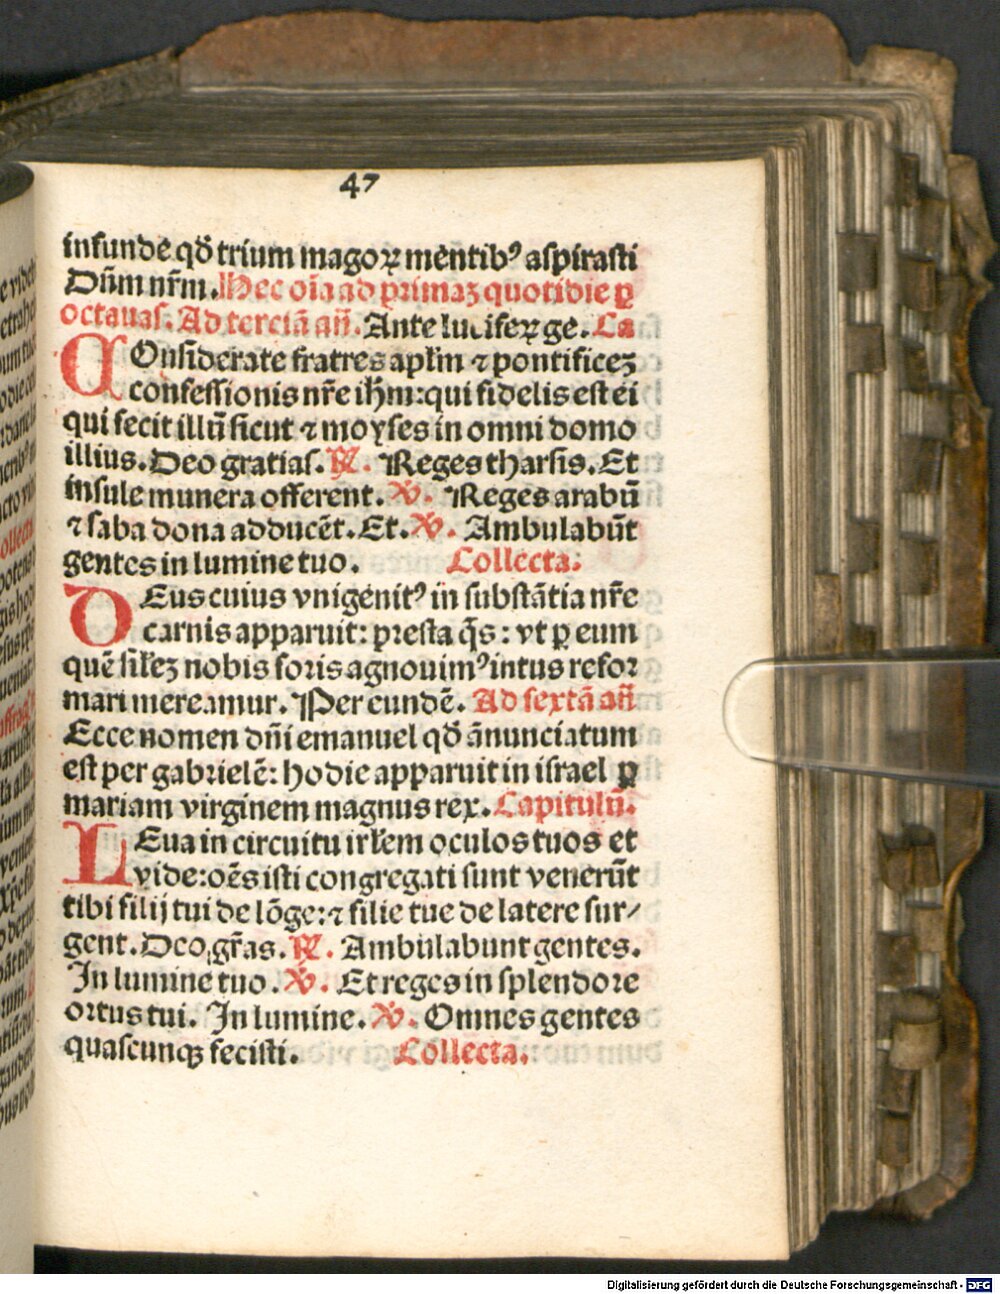 47
infunde qď trium magoꝝ mentibꝰ aspirasti
Dn̄m nr̄m. Hec oīa ad primaꝫ quotidie ꝑ
octauas. Ad terciā an̄. Ante luciferꝝ ge. Ca
COnsiderate fratres apl̄m ⁊ pontificeꝫ
confessionis nr̄e ih̄m: qui fidelis est ei
qui fecit illū sicut ⁊ moyses in omni domo
illius. Deo gratias. ℟. Reges tharsis. Et
insule munera offerent. ℣. Reges arabū
⁊ saba dona adducēt. Et. ℣. Ambulabūt
gentes in lumine tuo. Collecta.
DEus cuius vnigenitꝰ in substātia nr̄e
carnis apparuit: presta q̄s: vt ꝑ eum
quē sil̄eꝫ nobis foris agnouimꝰ intus refor
mari mereamur. Per eundē. Ad sextā an̄
Ecce nomen dn̄i emanuel qď ānunciatum
est per gabrielē: hodie apparuit in israel ꝑ
mariam virginem magnus rex. Capitulū.
LEua in circuitu irl̄em oculos tuos et
vide: oēs isti congregati sunt venerūt
tibi filij tui de lōge: ⁊ filie tue de latere sur/
gent. Deo gr̄as. ℟. Ambulabunt gentes.
In lumine tuo. ℣. Et reges in splendore
ortus tui. In lumine. ℣. Omnes gentes
quascunqꝫ fecisti. Collecta.
Digitalisierung gefördert durch die Deutsche Forschungsgemeinschaft - DFG